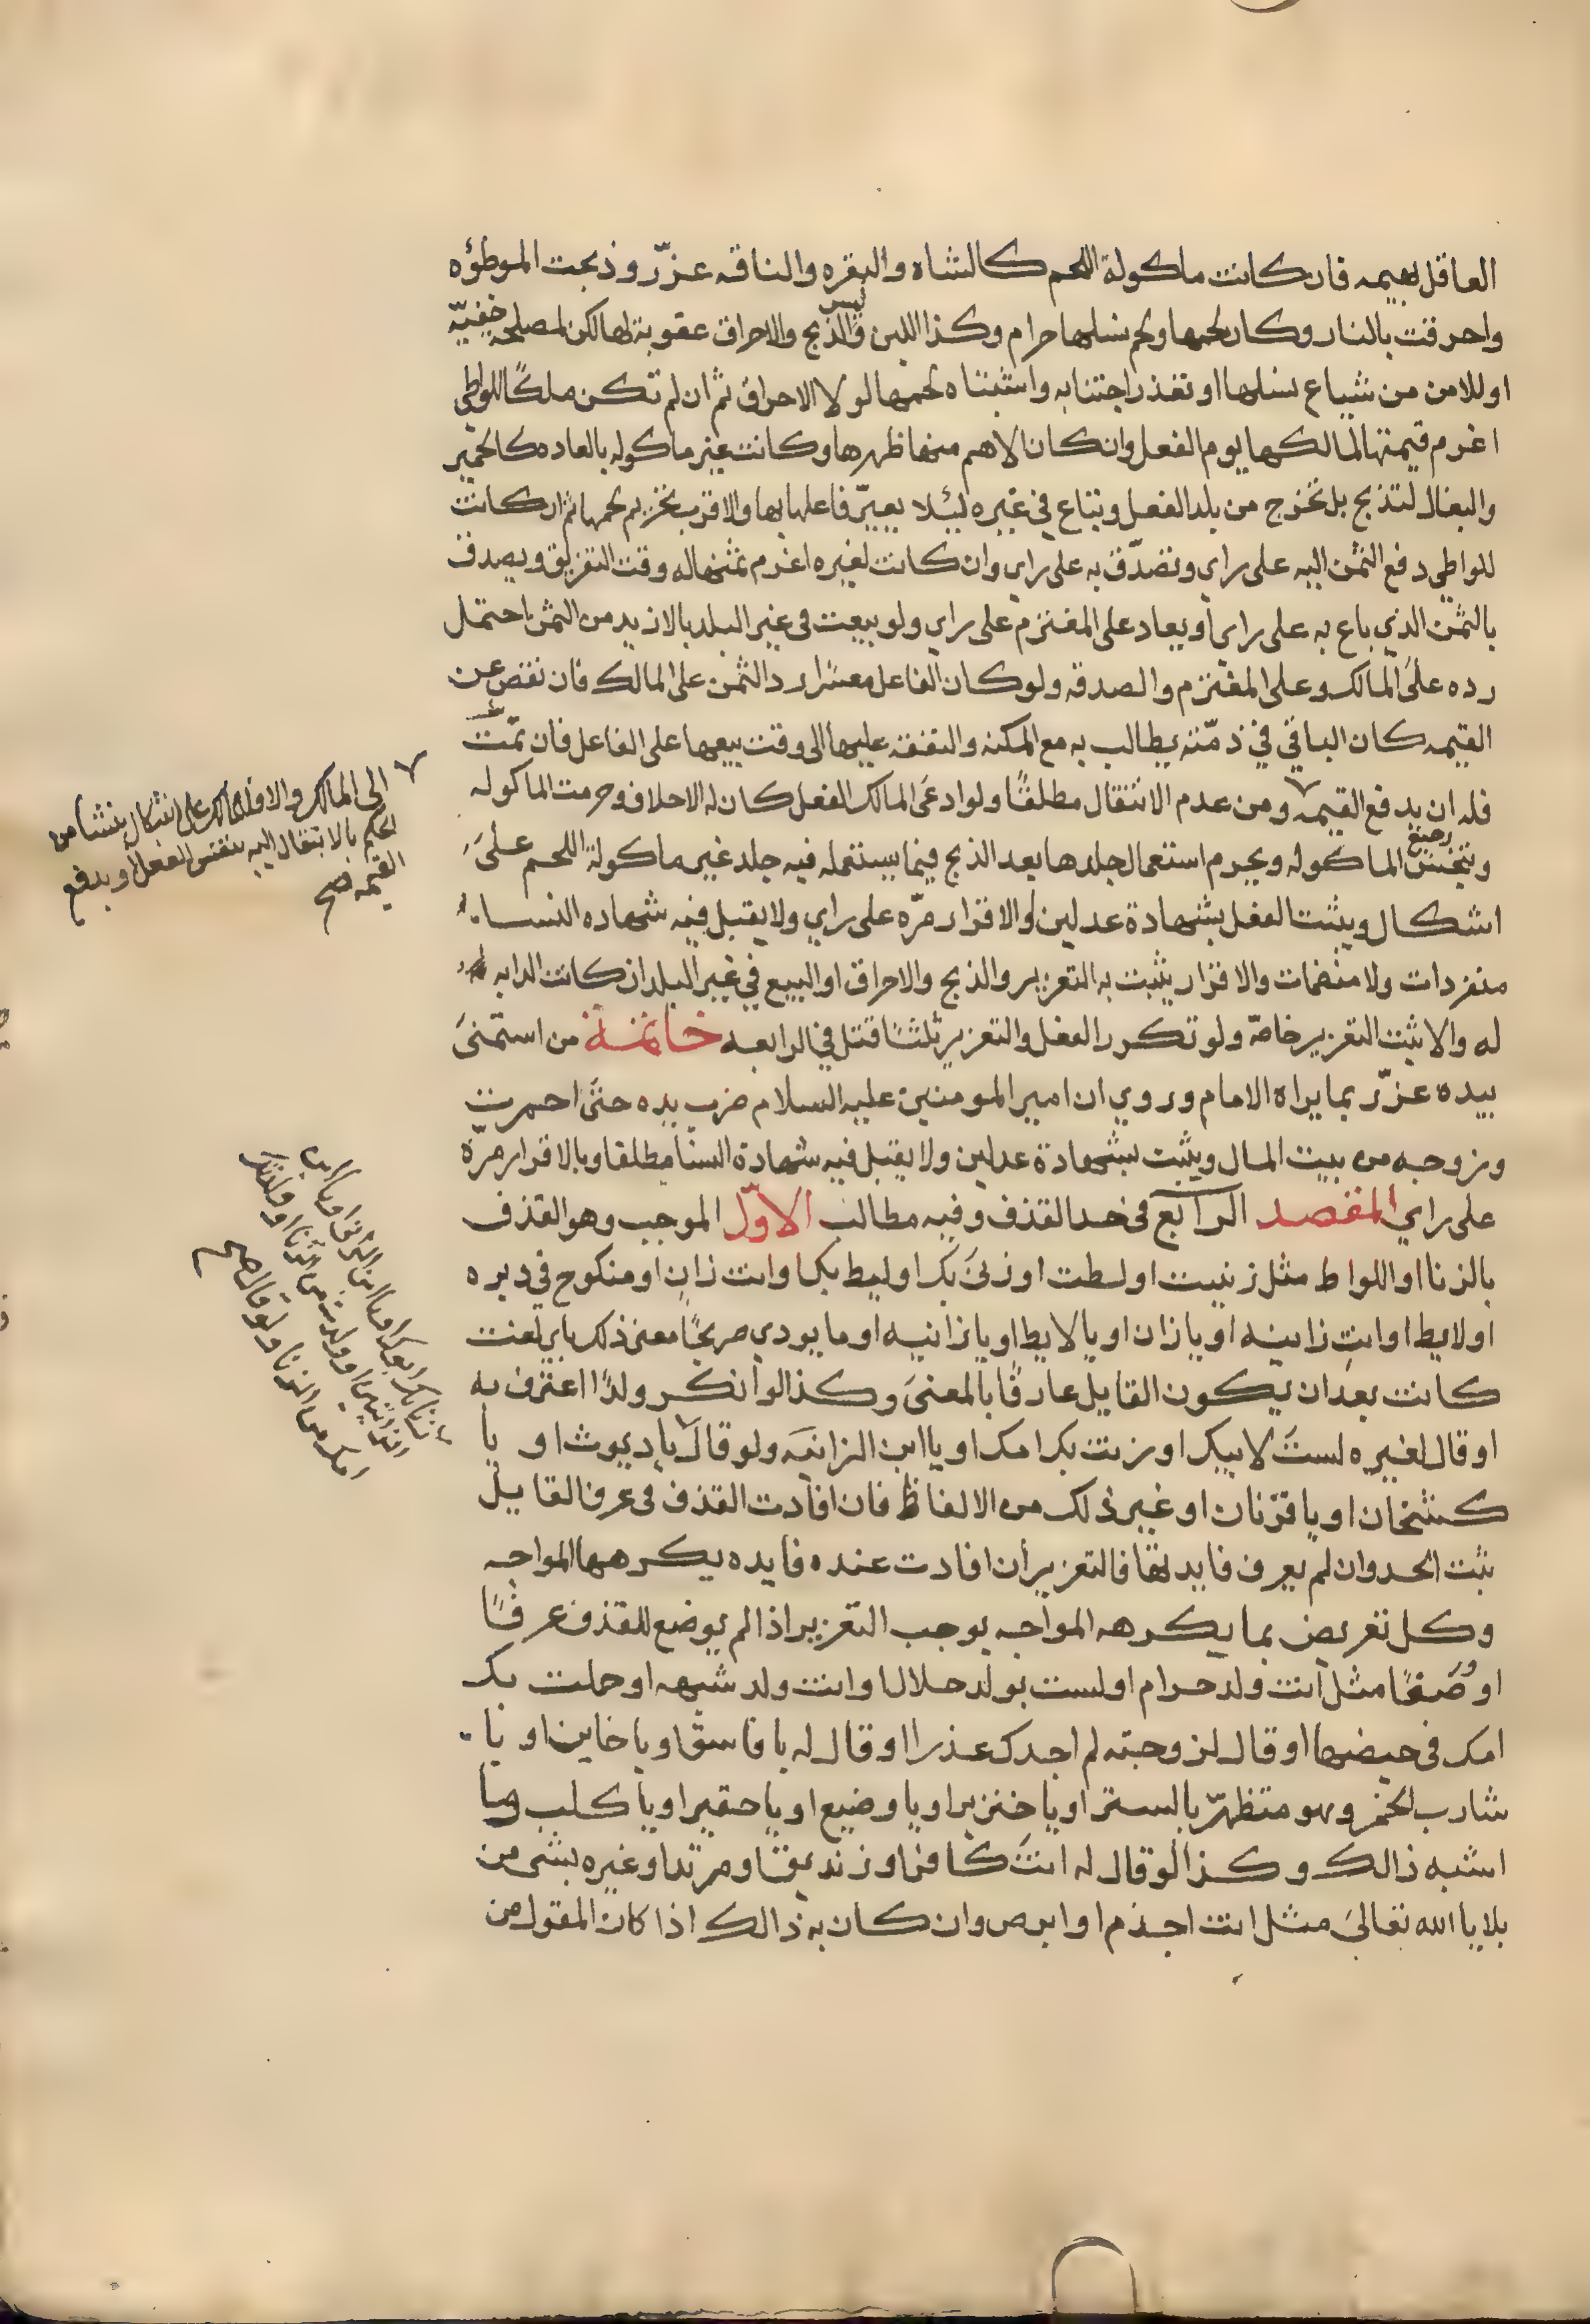 العاقل بهيمه فان كانت ماكولة اللحم كالشاه والبقره والناقه عزّر وذبحت الموطؤه
واحرقت بالنار وكان لحمها ولحم نسلها حرام وكذا اللبن وليس الذبح والاحراق عقوبة لها لكن لمصلحة خفيّه
او للامن من شياع نسلها او تعذر اجتنابه واشتباه لحمها لولا الاحراق ثم ان لم تكن ملكًا للواطي
اغرم قيمتها لمالكها يوم الفعل وان كان الاهم منها ظهرها وكانت غير ماكوله بالعاده كالحمير
والبغال لم تذبح بل تخرج من بلد الفعل وتباع في غيره لئلا يعيّر فاعلها بها والاقرب تحريم لحمها ثم ان كانت
للواطي دفع الثمن اليه على راي وتصدّق به على راي وان كانت لغيره اغرم ثمنها له وقت التفريق ويصدق
بالثمن الذي باع به على راي او يعاد على المغترم على راي ولو بيعت في غير البلد بالازيد من الثمن احتمل
رده على المالك وعلى المغترم والصدقه ولو كان الفاعل معسرًا رد الثمن على المالك فان نقص عن
القيمه كان الباقي في ذمّته يطالب به مع المكنه والنفقه عليها الى وقت بيعها على الفاعل فان تمّت
فله ان يدفع القيمه ومن عدم الانتقال مطلقًا ولو ادعى المالك الفعل كان له الاحلاف وحرمت الماكوله
وتنجس رجيع الماكوله ويحرم استعمال جلدها بعد الذبح فيما يستعمله فيه جلد غير ماكولة اللحم على
اشكال ويثبت الفعل بشهادة عدلين او الاقرار مرّه على راي ولا يقبل فيه شهاده النساء
منفردات ولا منضمات والاقرار يثبت به التعزير والذبح والاحراق او البيع في غير البلد ان كانت الدابه
له والا ثبت التعزير خاصّه ولو تكرر الفعل والتعزير ثلثًا قتل في الرابعه خاتمة من استمنى
بيده عزّر بما يراه الامام وروي ان امير المومنين عليه السلام ضرب يده حتى احمرت
وزوجه من بيت المال ويثبت بشهادة عدلين ولا يقبل فيه شهادة النسا مطلقا وبالاقرار مرّه
على راي المقصد الرابع في حد القذف وفيه مطالب الاوّل الموجب وهو القذف
بالزنا او اللواط مثل زنيت او لطت او زنى بك او ليط بك او انت زان او منكوح في دبره
او لايط او انت زانيه او يا زان او يا لايط او يا زانيه او ما يودي صريحًا معنى ذلك باي لغت
كانت بعد ان يكون القايل عارفًا بالمعنى وكذا لو انكر ولدًا اعترف به
او قال لغيره لست لابيك او زنت بك امك او يا ابن الزانيه ولو قال يا ديوث او يا
كشخان او يا قرنان او غير ذلك من الالفاظ فان افادت القذف في عرف القايل
ثبت الحد وان لم يعرف فايدتها فالتعزير ان افادت عنده فايده يكرهها المواجه
وكل تعريض بما يكرهه المواجه يوجب التعزير اذا لم يوضع للقذف عرفًا
او وضعًا مثل انت ولد حرام او لست بولد حلال او انت ولد شبهه او حملت بك
امك في حيضها او قال لزوجته لم اجدك عذرا او قال له يا فاسق او يا خاين او يا
شارب الخمر وهو متظهرّ بالستر او يا خنزير او يا وضيع او يا حقير او يا كلب وما
اشبه ذالك وكذا لو قال له انت كافر او زنديق او مرتد او غيره بشى من
بلايا الله تعالى مثل انت اجذم او ابرص وان كان به ذالك اذا كان المقول من
الى المالك والا فللمالك على اشكال ينشا من
الحكم بالانتقال اليه بنفس الفعل او بدفع
القيمه صح
زنا بك ابوك او يا ابن الزاني او يا ابن
الزانيين او ولدت من الزنا او ولدتك
امك من الزنا ولو قال صح